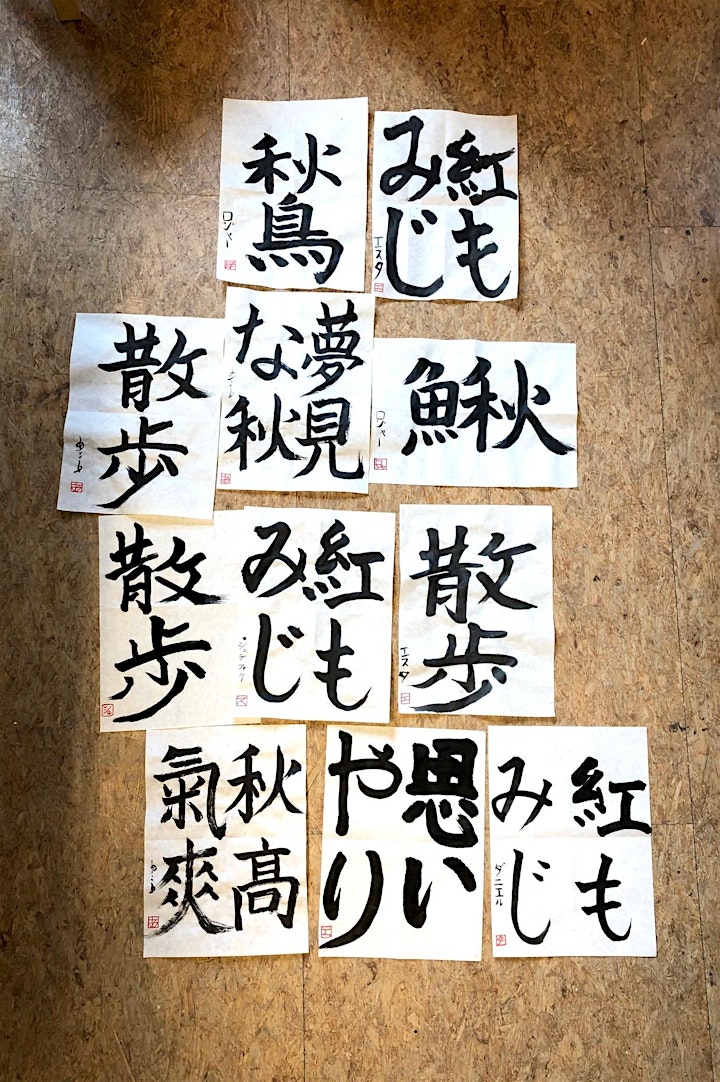 秋鳥
ロジャー
紅も
みじ
エスタ
散歩
夢見
な秋
鰍
ロジャー
散歩
紅も
みじ
散歩
エスタ
秋高
氣爽
思い
やり
紅も
みじ
ダニエル